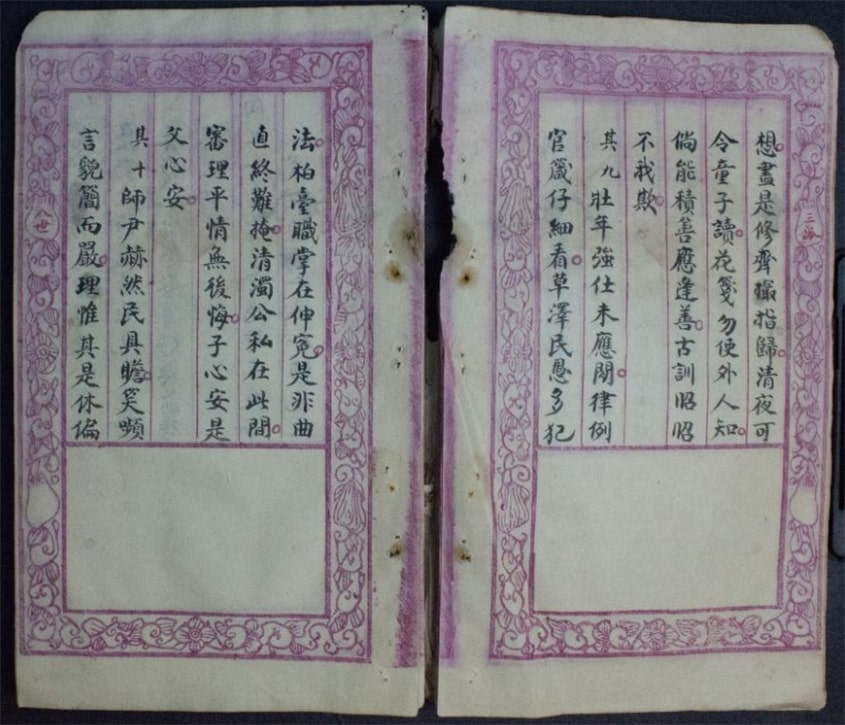 想盡是修齊撮指歸清夜可
令童子讀花箋勿使外人知
倘能積善應逢善古訓昭昭
不我欺
其九壯年強仕未應閒律例
官箴仔細看草澤民愚多犯
法柏臺職掌在伸冤是非曲
直終難掩清濁公私在此間
審理平情無後悔子心安是
父心安
其十師尹赫然民具瞻笑嚬
言貌簡而嚴理惟其是休偏